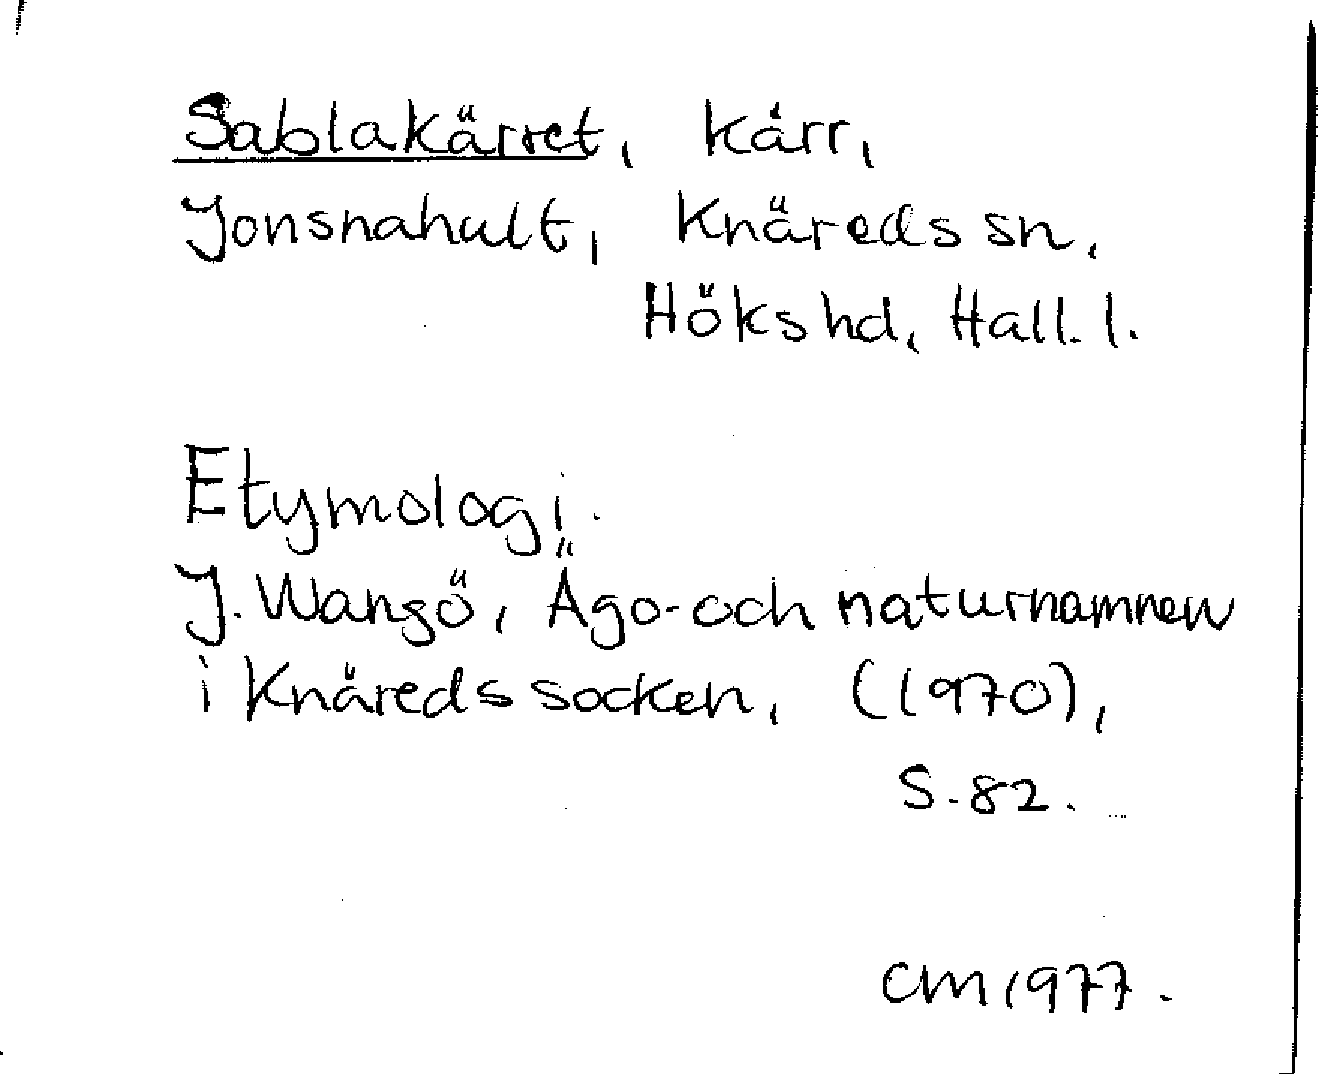 Sablakärret, kärr,
Jonsnahult, Knäreds sn.
Höks hd, Hall. l.
Etymologi.
J. Wangö, Ägo- och naturnamnen
i Knäreds socken, (1970),
S. 82.
CM 1977.